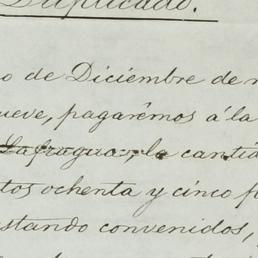 Duplicado.
o de Diciembre de
ueve, pagarémos á la
Lafragua, la canti
tos ochenta y cinco
stando convenidos,